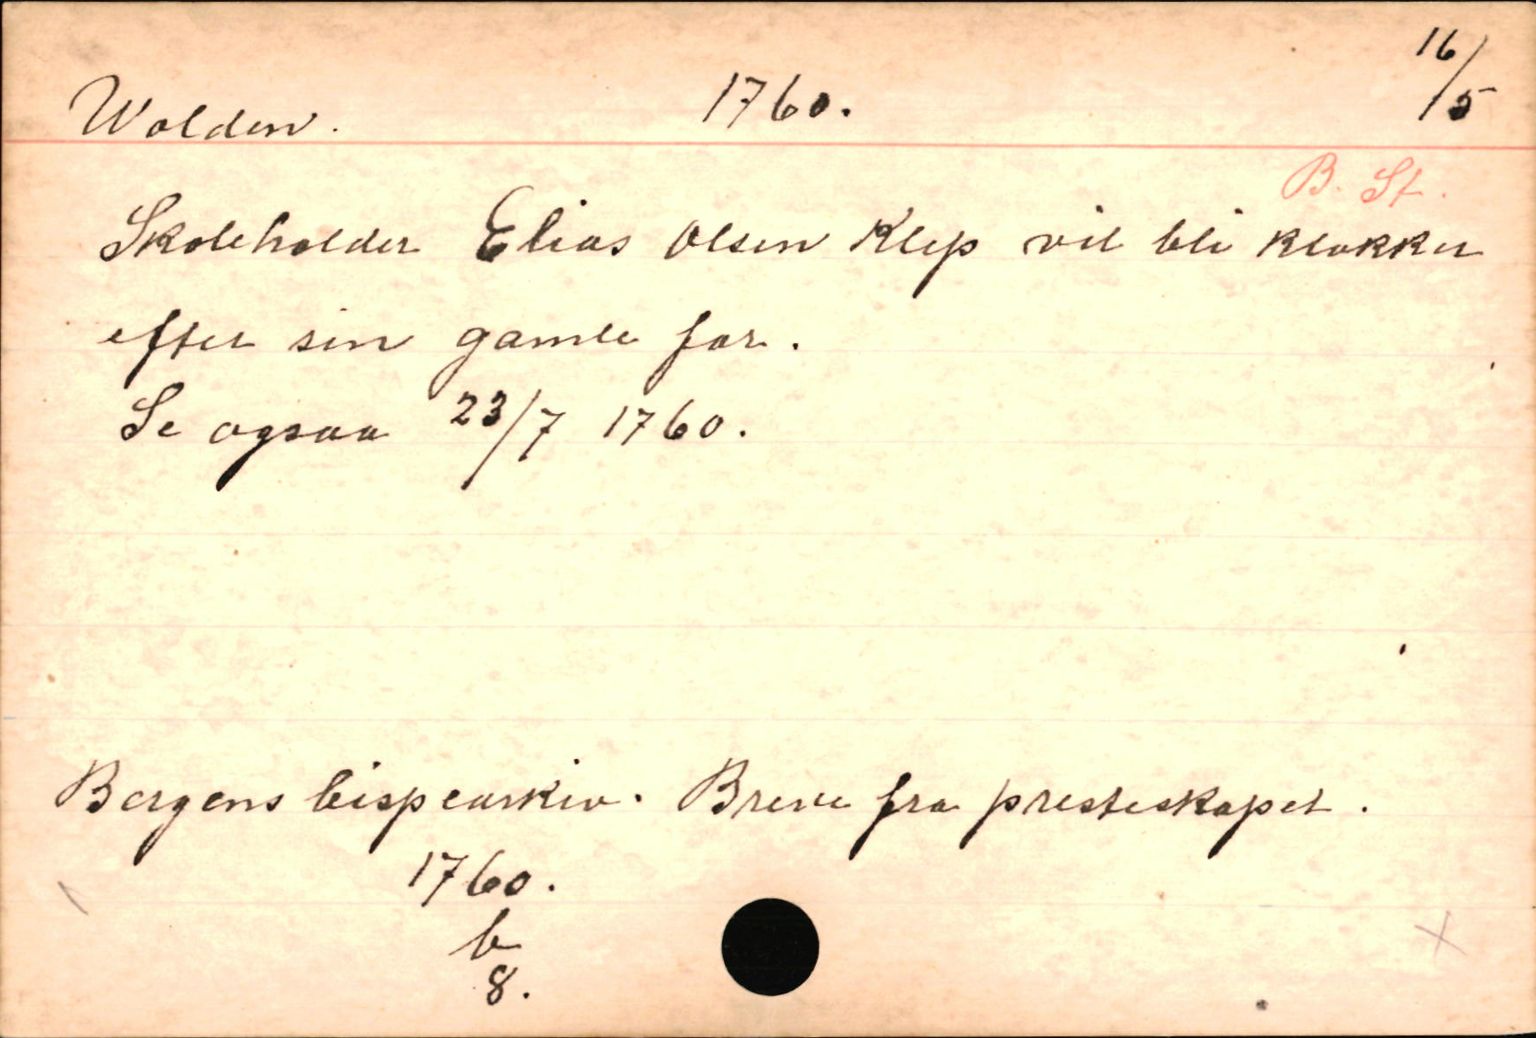 Wolden. 1760. 16/5
B. St.
Skoleholder Elias Olsen Klep vil bli klokker
efter sin gamle far.
Se ogsaa 23/7 1760.
Bergens bispearkiv. Breve fra presteskapet.
1760.
b
8.